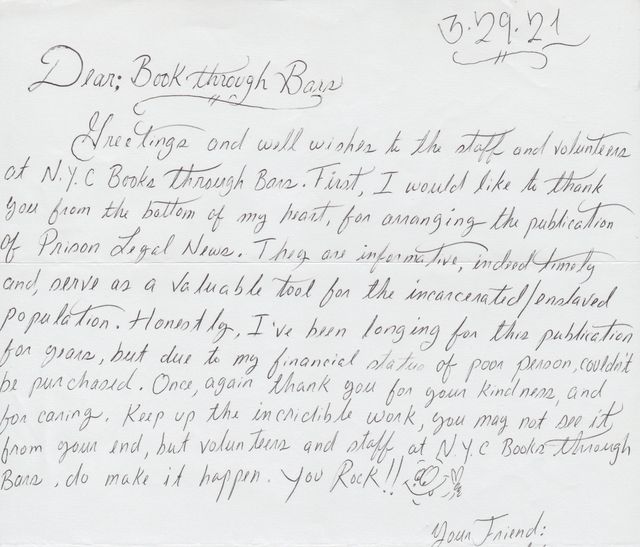 3.29.21
Dear; Book through Bars
Greetings and well wishes to the staff and volunteers
at N.Y.C Books through Bars. First, I would like to thank
you from the bottom of my heart, for arranging the publication
of Prison Legal News. They are informative, indeed timely
and, serve as a valuable tool for the incarcerated/enslaved
population. Honestly, I've been longing for this publication
for years, but due to my financial status of poor person, couldn't
be purchased. Once, again thank you for your kindness, and
for caring. Keep up the incridible work, you may not see it,
from your end, but volunteers and staff at N.Y.C Books through
Bars, do make it happen. You Rock!!
Your Friend: